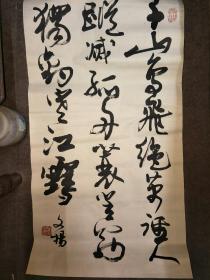 千山鳥飛絕萬徑人
蹤滅孤舟蓑笠翁
獨釣寒江雪
文楊